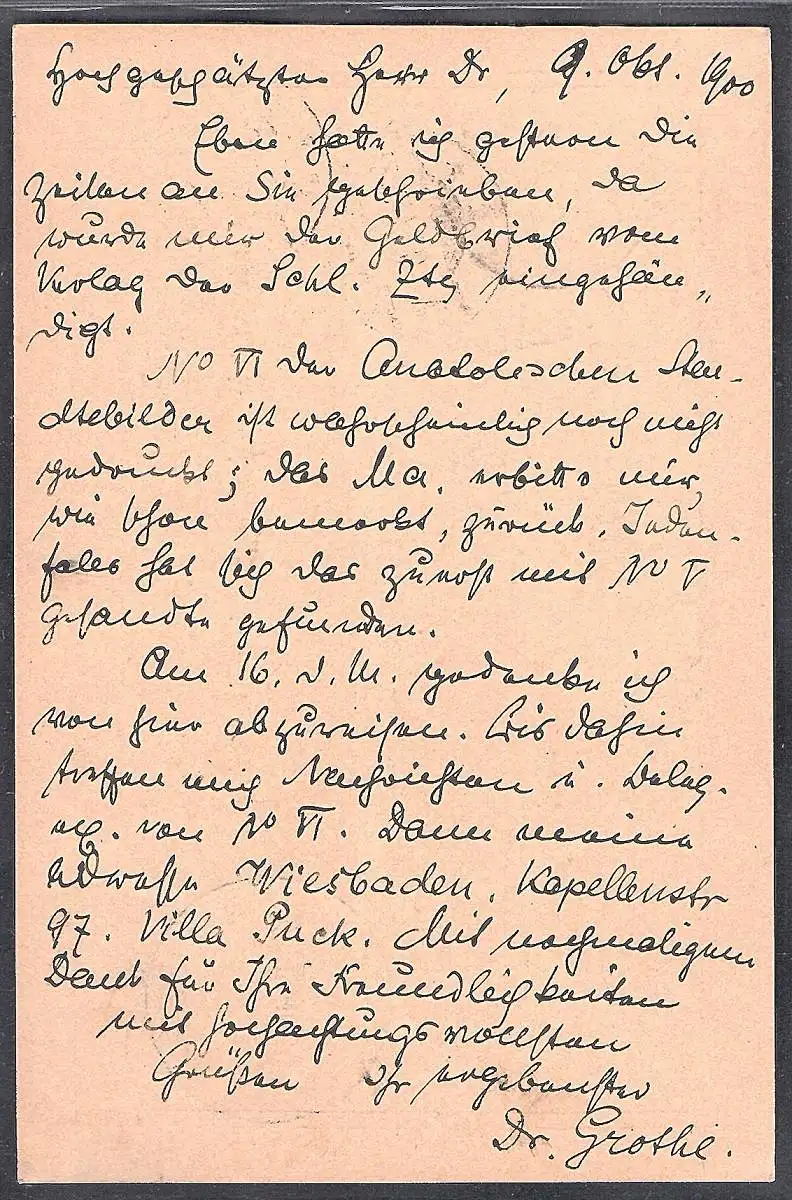 Hochgeschätzter Herr Dr, 9. Okt. 1900
Eben hatte ich gestern die
Zeilen an Sie geschrieben, da
wurde mir der Geldbrief vom
Verlag der Schl. Ztg eingehän„
digt.
No VI der Anatolischen Sta-
dtebilder ist wahrscheinlich noch nicht
gedruckt; das Ma. erbitte mir,
wie schon bemerkt, zurück. Jeden-
falls hat sich das zuerst mit No V
gesandte gefunden.
Am 16. d. M. gedenke ich
von hier abzureisen. Bis dahin
treffen mich Nachrichten u. Beleg-
ex. von No VI. Dann meine
Adresse Wiesbaden, Kapellenstr
97. Villa Puck. Mit nochmaligem
Dank für Ihre Freundlichkeiten
mit hochachtungsvollsten
Grüßen Ihr ergebenster
Dr. Grothe.